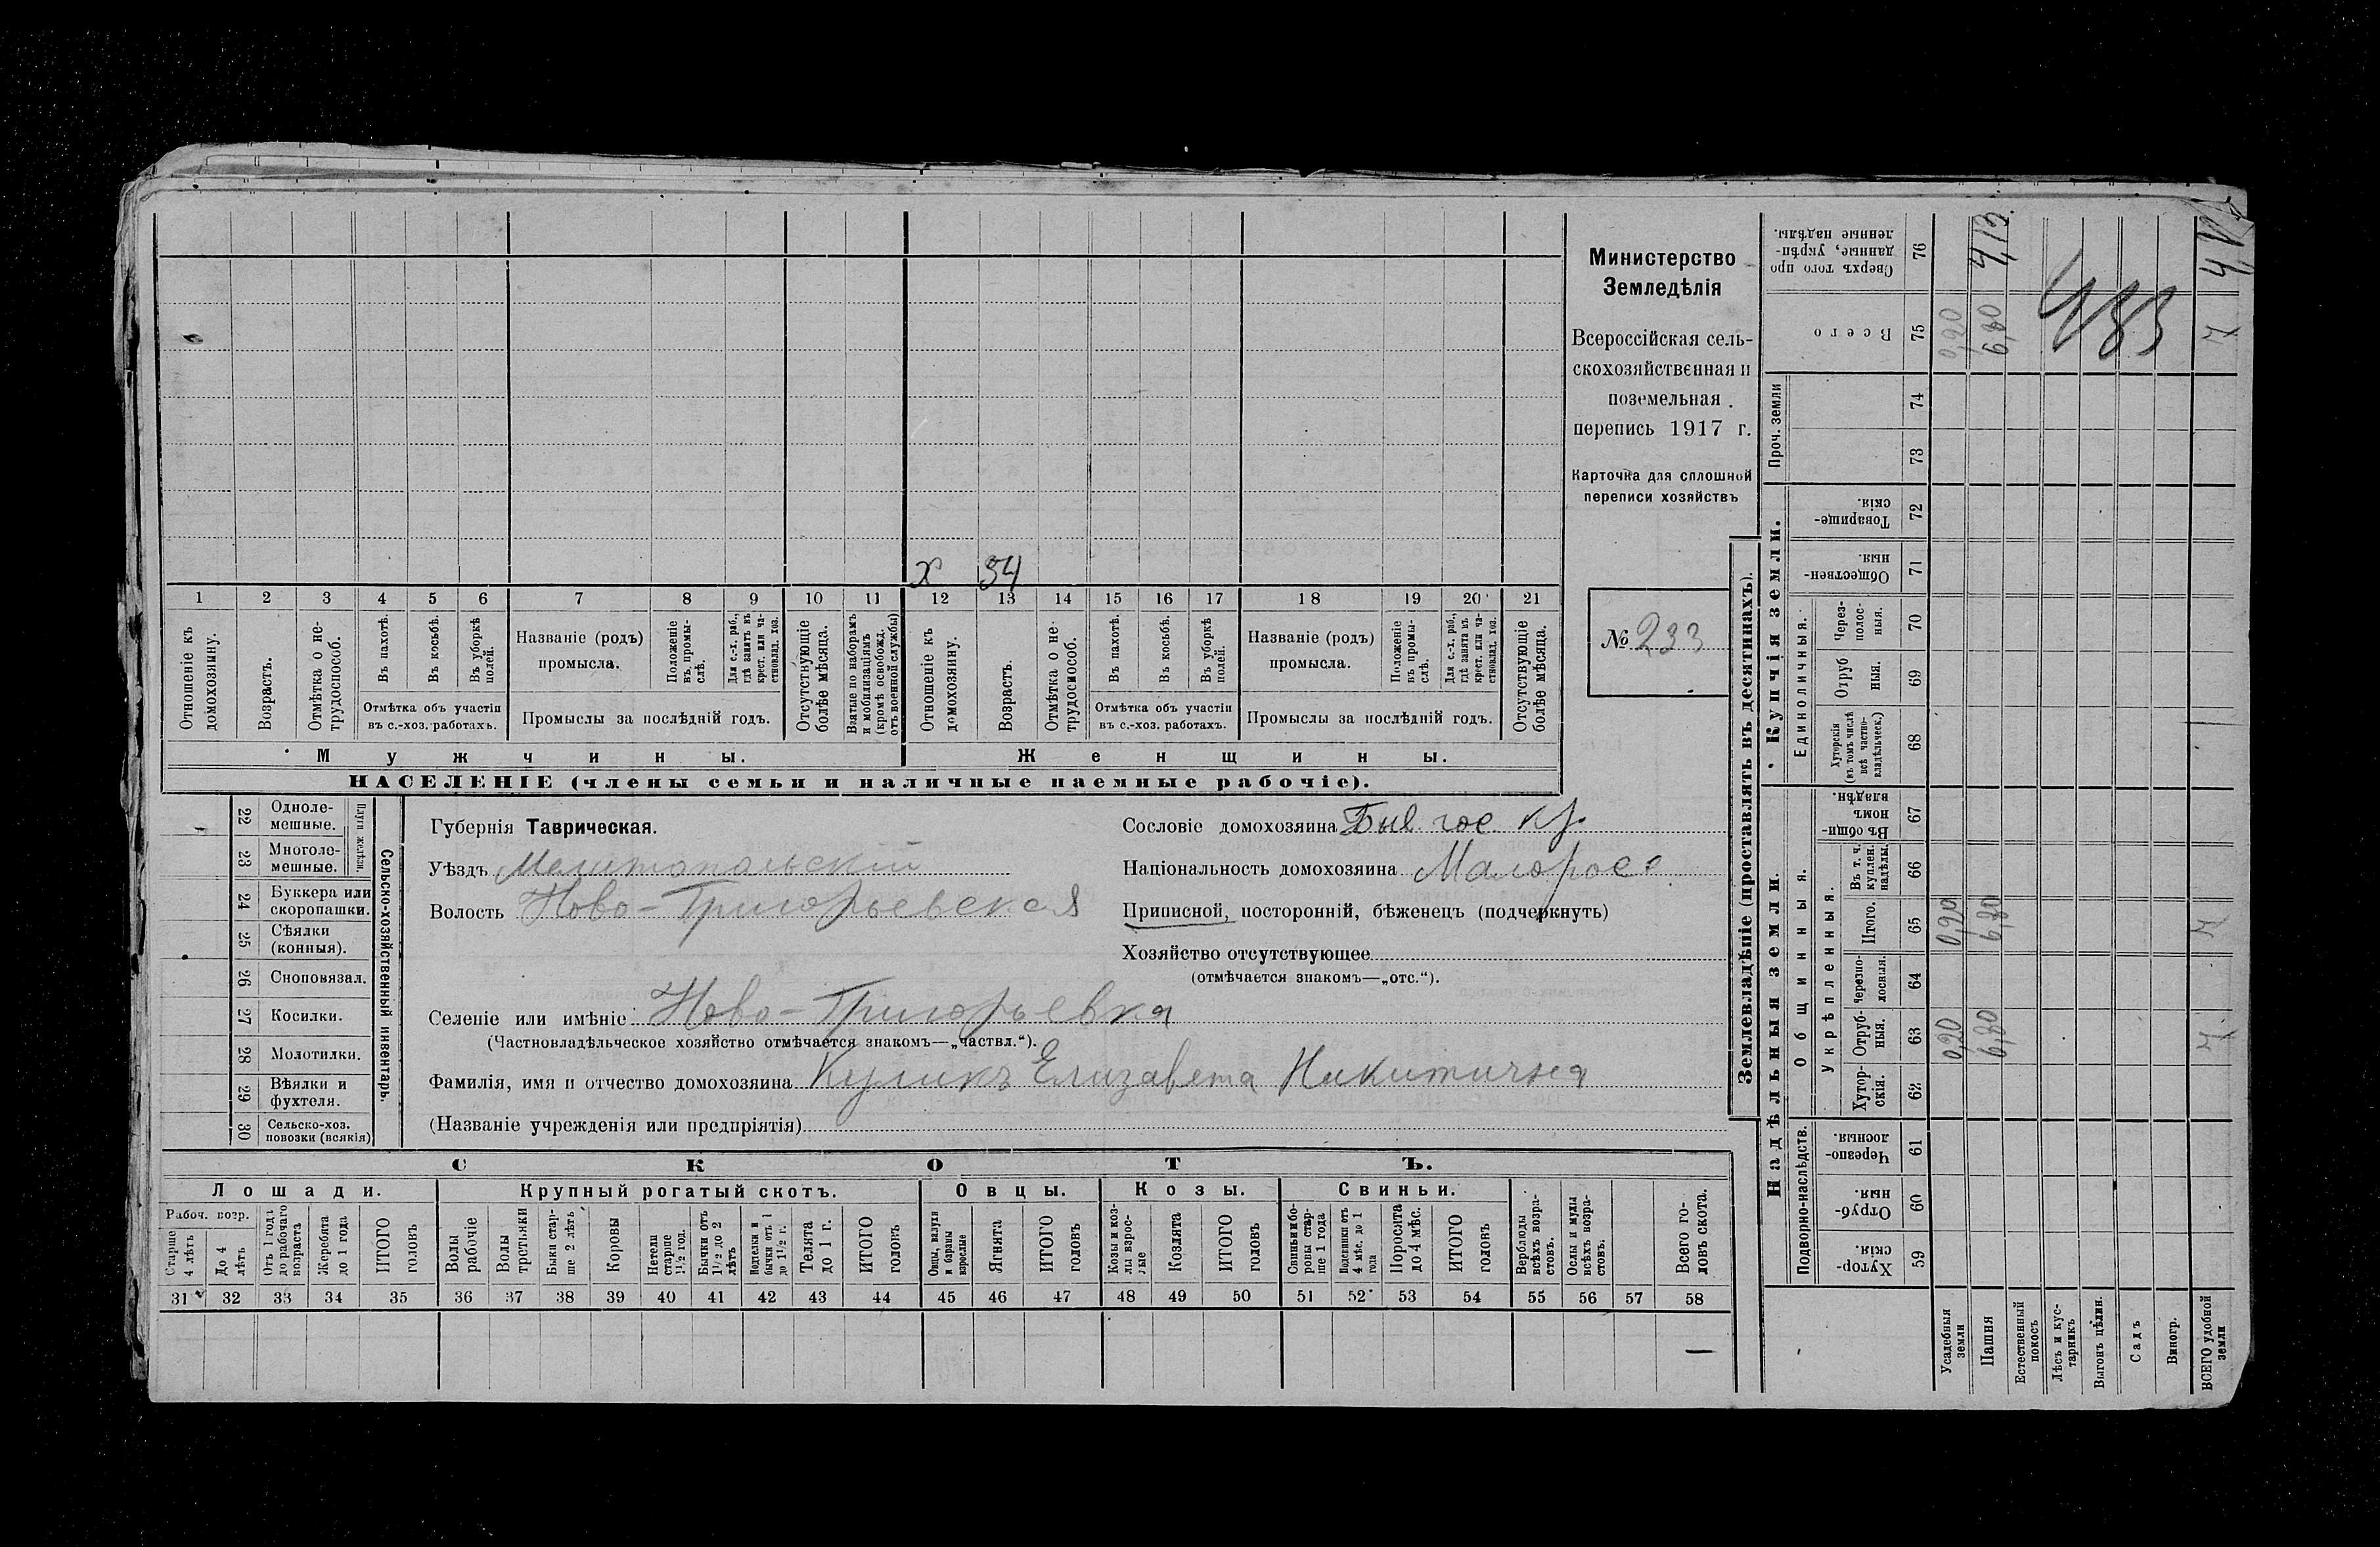 х 54
1 2 3 4 5 6 7 8 9 10 11 12 13 14 15 16 17 18 19 20 21
Отношеніе къ домохозяину.
Возрастъ.
Отмѣтка о не-трудоспособ.
Въ пахотѣ.
Въ косьбѣ.
Въ уборкѣ полей.
Отмѣтка объ участіи
въ с.-хоз. работахъ.
Названіе (родъ)
промысла.
Положеніе въ промы-слѣ.
Для с.-х. раб., гдѣ занятъ въ крест. или ча-стновлад. хоз.
Промыслы за послѣдній годъ.
Отсутствующіе болѣе мѣсяца.
Взятые по наборамъ и мобилизаціямъ (кромѣ освобожд. отъ военной службы)
Отношеніе къ домохозяину.
Возрастъ.
Отмѣтка о не-трудоспособ.
Въ пахотѣ.
Въ косьбѣ.
Въ уборкѣ полей.
Отмѣтка объ участіи
въ с.-хоз. работахъ.
Названіе (родъ)
промысла.
Положеніе въ промы-слѣ.
Для с.-х. раб., гдѣ занята въ крест. или ча-стновлад. хоз.
Промыслы за послѣдній годъ.
Отсутствующіе болѣе мѣсяца.
Мужчины. Женщины.
НАСЕЛЕНІЕ (члены семьи и наличные наемные рабочіе).
Министерство
Земледѣлія
Всероссійская сель-
скохозяйственная и
поземельная
перепись 1917 г.
Карточка для сплошной
переписи хозяйствъ
№ 233
Сельско-хозяйственный инвентарь.
Плуги желѣзн.
22 Одноле-
мешные.
23 Многоле-
мешные.
24 Буккера или
скоропашки.
25 Сѣялки
(конныя).
26 Сноповязал.
27 Косилки.
28 Молотилки.
29 Вѣялки и
фухтеля.
30 Сельско-хоз.
повозки (всякія)
Губернія Таврическая.
Уѣздъ Мелитопольскій
Волость Ново-Григорьевская
Сословіе домохозяина Быв. гос. кр.
Національность домохозяина Малорос.
Приписной, посторонній, бѣженецъ (подчеркнуть)
Хозяйство отсутствующее
(отмѣчается знакомъ—„отс.“).
Селеніе или имѣніе Ново-Григорьевка
(Частновладѣльческое хозяйство отмѣчается знакомъ—„частвл.“).
Фамилія, имя и отчество домохозяина Куликъ Елизавета Никитична
(Названіе учрежденія или предпріятія)
СКОТЪ.
Лошади. Крупный рогатый скотъ. Овцы. Козы. Свиньи.
Рабоч. возр.
Старше 4 лѣтъ
До 4 лѣтъ
Отъ 1 года до рабочаго возраста
Жеребята до 1 года
ИТОГО головъ
Волы рабочіе
Волы третьяки
Быки стар-ше 2 лѣтъ
Коровы
Нетели старше 1½ год.
Бычки отъ 1½ до 2 лѣтъ
Нетелки и бычки отъ 1 до 1½ г.
Телята до 1 г.
ИТОГО головъ
Овцы, валухи и бараны взрослые
Ягнята
ИТОГО головъ
Козы и коз-лы взрос-лые
Козлята
ИТОГО головъ
Свиньи и бо-ровы стар-ше 1 года
Подсвинки отъ 4 мѣс. до 1 года
Поросята до 4 мѣс.
ИТОГО головъ
Верблюды всѣхъ возра-стовъ.
Ослы и мулы всѣхъ возра-стовъ.
Всего го-ловъ скота.
31 32 33 34 35 36 37 38 39 40 41 42 43 44 45 46 47 48 49 50 51 52 53 54 55 56 57 58
—
Землевладѣніе (проставлять въ десятинахъ).
Надѣльныя земли. Купчія земли. Проч. земли
Подворно-наслѣдств.
Общинныя.
Укрѣпленныя.
Единоличныя.
Хутор-скія. 59
Отруб-ныя. 60
Черезпо-лосныя. 61
Хутор-скія. 62
Отруб-ныя. 63
Черезпо-лосныя. 64
Итого. 65
Въ т. ч. куплен. надѣлы. 66
Въ общин-номъ владѣн. 67
Хуторскія (въ томъ числѣ всѣ частно-владѣльческ.) 68
Отруб ныя. 69
Через-полос-ныя. 70
Обществен-ныя. 71
Товарище-скія. 72
73
74
Всего 75
Сверхъ того про данные, укрѣп-ленные надѣлы. 76
Усадебныя земли 0,20 0,20 0,20
Пашня 6,80 6,80 6,80 4,13
Естественный покосъ
Лѣсъ и кус-тарникъ
Выгонъ цѣлин.
Садъ
Виногр.
ВСЕГО удобной земли 7 7 7
483